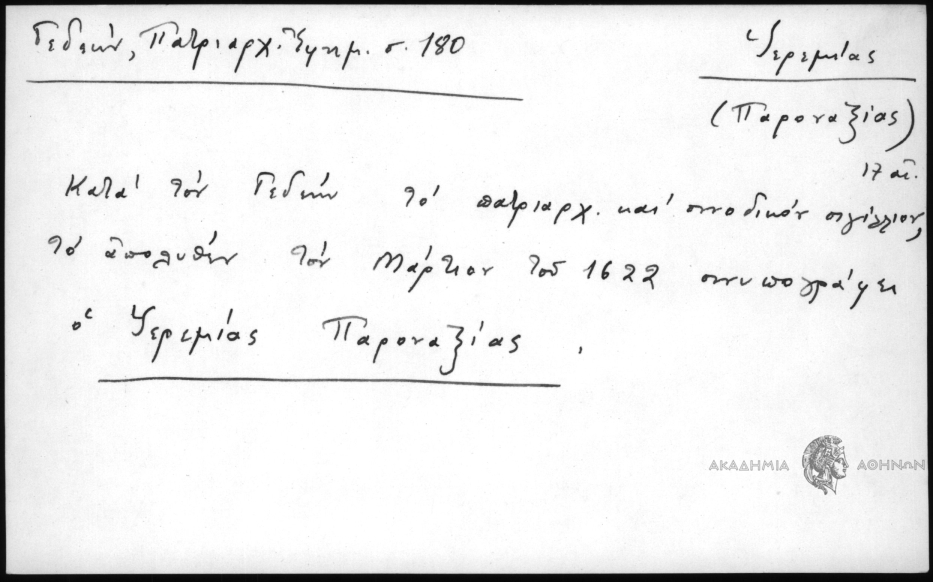 Γεδεών, Πατριαρχ. Ἐφημ. σ. 180
Ἱερεμίας
(Παροναξίας)
17 αἰ.
Κατά τόν Γεδεών τό πατριαρχ. καί συνοδικόν σιγίλλιον,
τό ἀπολυθέν τόν Μάρτιον τοῦ 1622 συνυπογράφει
ὁ Ἱερεμίας Παροναξίας.
ΑΚΑΔΗΜΙΑ ΑΘΗΝΩΝ